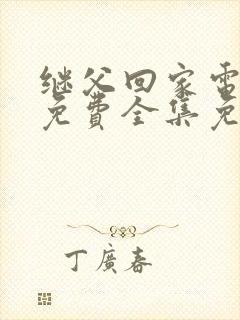 继父回家電
免費全集免
丁廣春